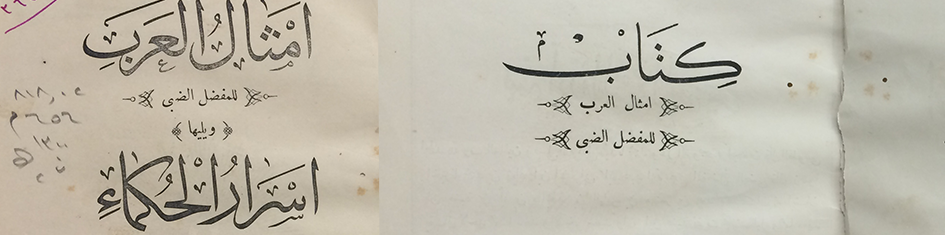 امثال العرب
للمفضل الضبي
ويليها
اسرار الحكماء
كتاب
امثال العرب
للمفضل الضبي